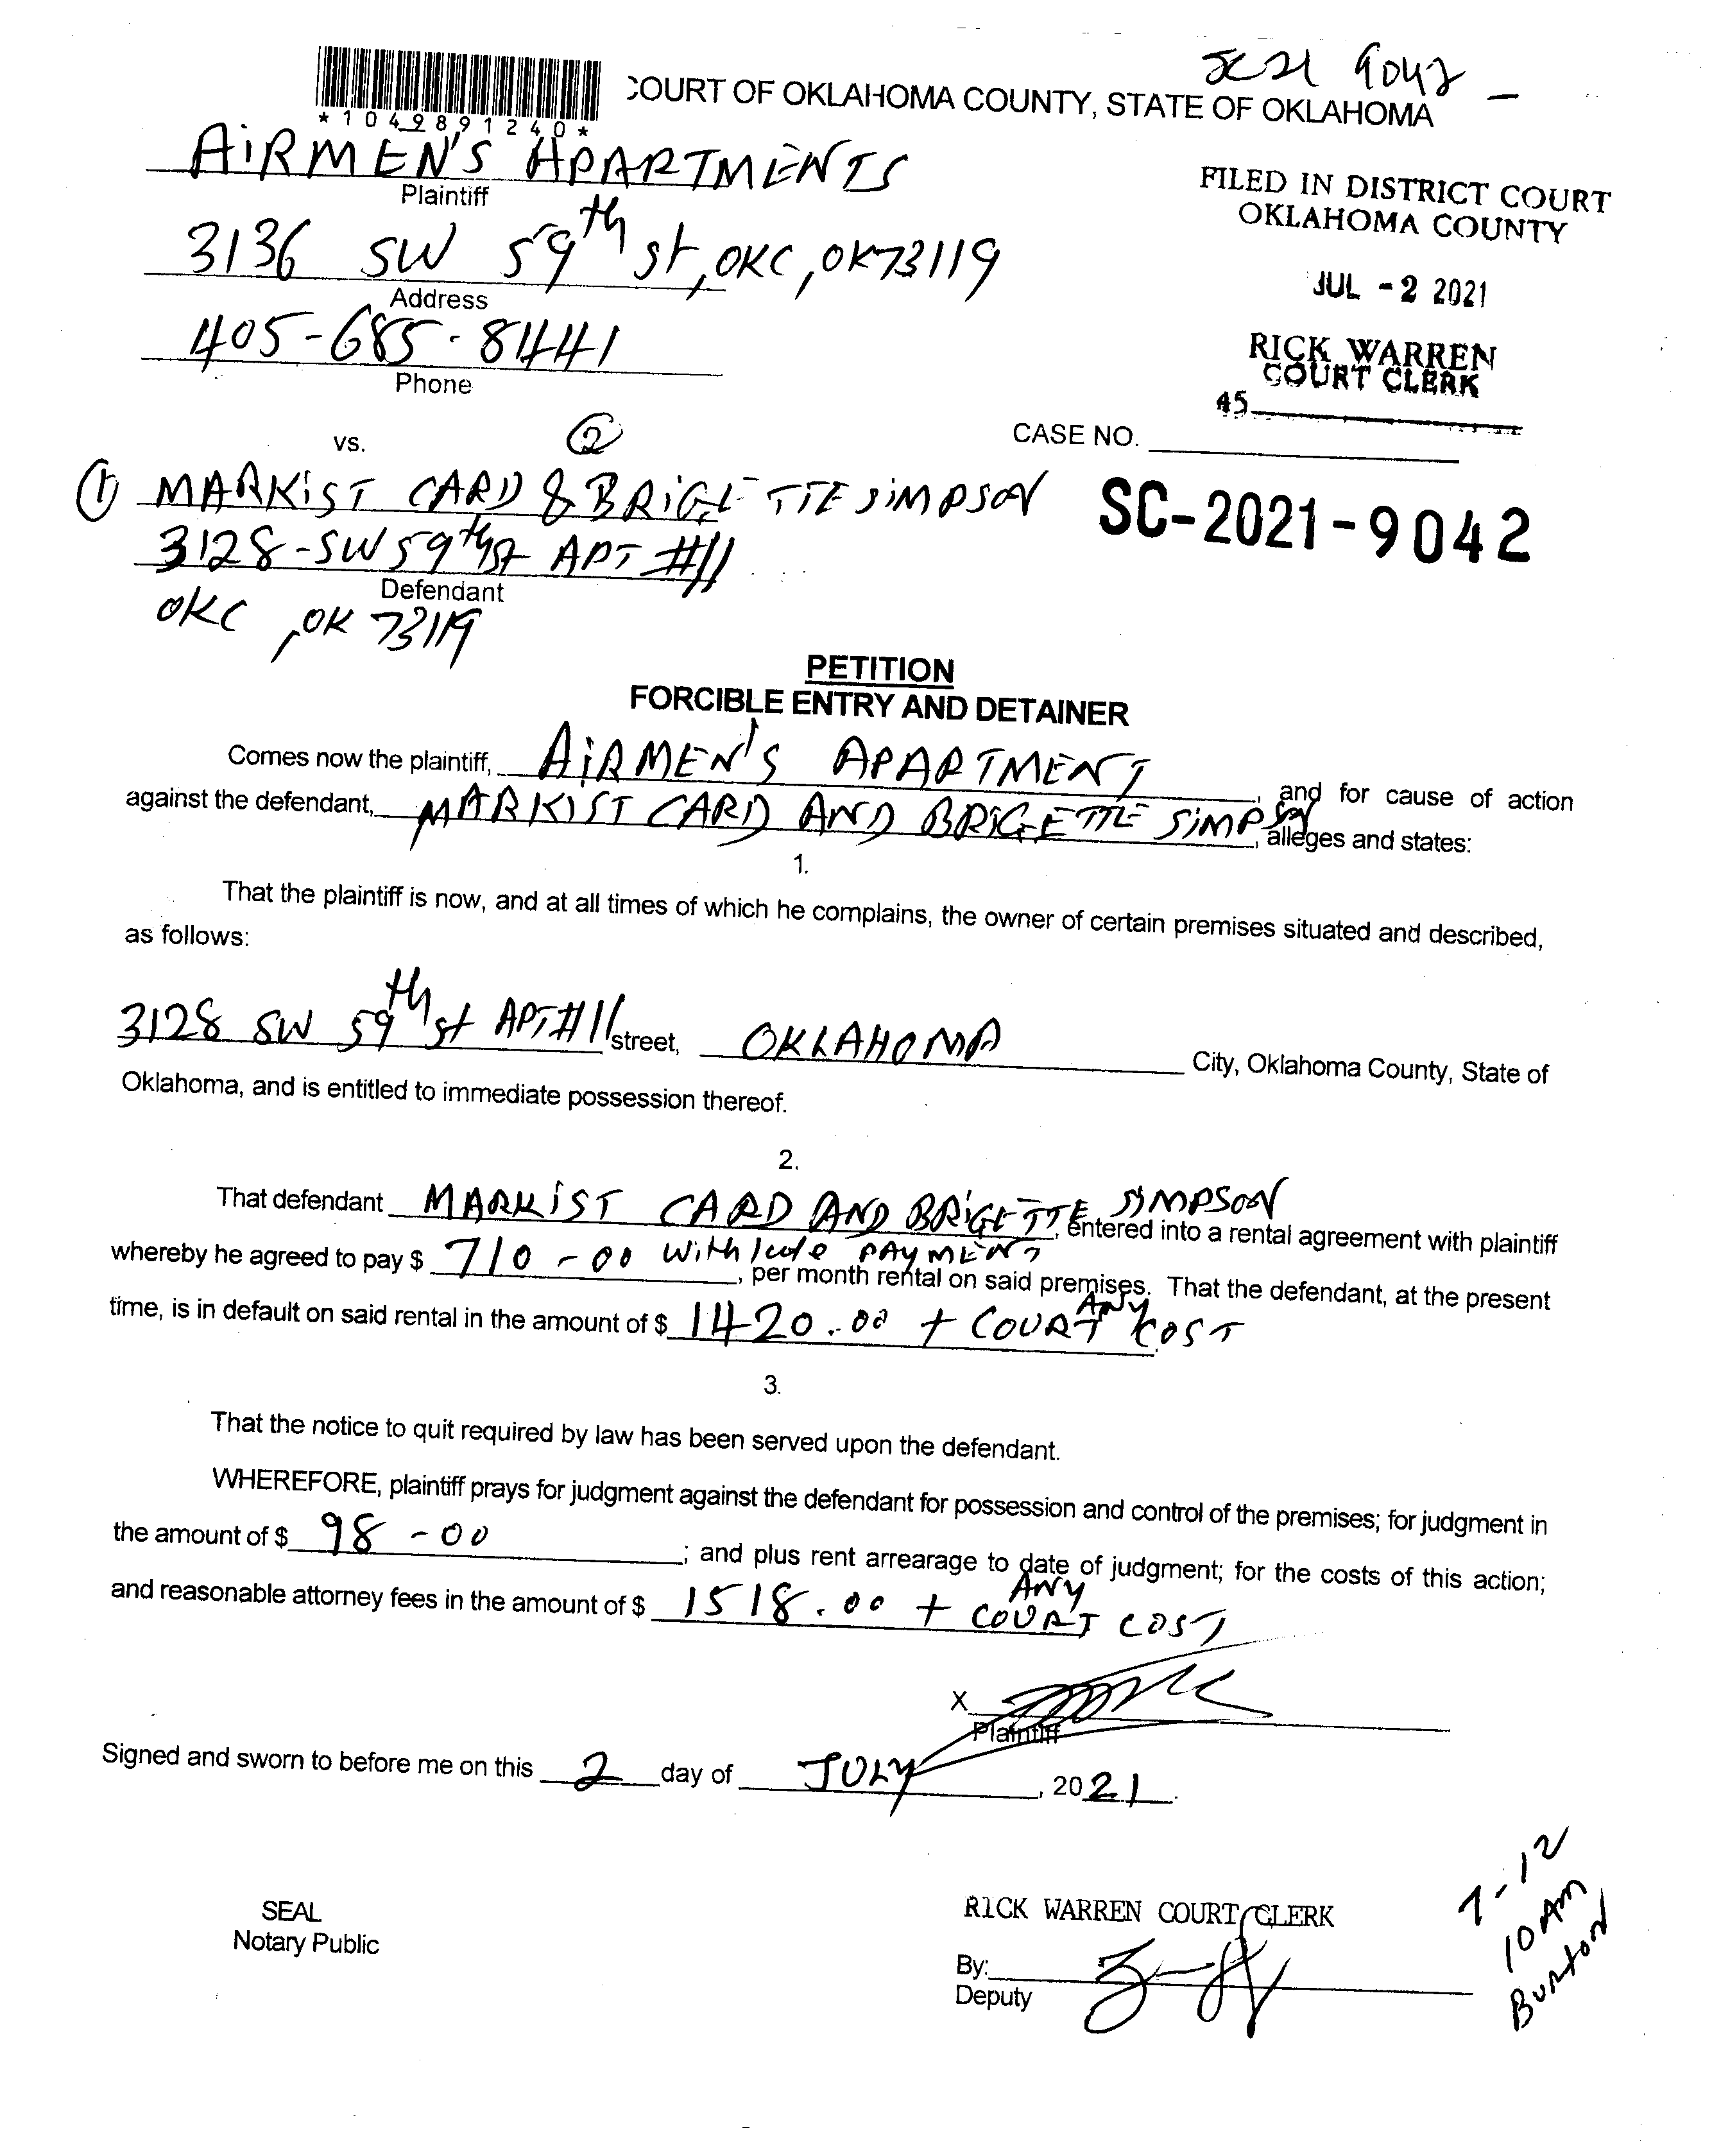 SC21 9042 -
COURT OF OKLAHOMA COUNTY, STATE OF OKLAHOMA
*1049891240*
AiRMEN'S APARTMENTS
Plaintiff
FILED IN DISTRICT COURT
OKLAHOMA COUNTY
3136 SW 59th St, OKC, OK 73119
Address
JUL - 2 2021
405-685-8441
Phone
RICK WARREN
COURT CLERK
45
vs.
2
CASE NO.
1 MARKiST CARD & BRiGETTE SiMPSON
SC-2021-9042
3128-SW 59th St APT #11
Defendant
OKC, OK 73119
PETITION
FORCIBLE ENTRY AND DETAINER
Comes now the plaintiff, AiRMEN'S APARTMENT, and for cause of action
against the defendant, MARKIST CARD AND BRIGETTE SiMPSON, alleges and states:
1.
That the plaintiff is now, and at all times of which he complains, the owner of certain premises situated and described,
as follows:
3128 SW 59th St APT#11 street, OKLAHOMA City, Oklahoma County, State of
Oklahoma, and is entitled to immediate possession thereof.
2.
That defendant MARKiST CARD AND BRiGETTE SiMPSON, entered into a rental agreement with plaintiff
whereby he agreed to pay $ 710-00 With late PAYMENT, per month rental on said premises. That the defendant, at the present
time, is in default on said rental in the amount of $ 1420.00 + ANY COURT COST.
3.
That the notice to quit required by law has been served upon the defendant.
WHEREFORE, plaintiff prays for judgment against the defendant for possession and control of the premises; for judgment in
the amount of $ 98-00; and plus rent arrearage to date of judgment; for the costs of this action;
and reasonable attorney fees in the amount of $ 1518.00 + ANY COURT COST
X
Plaintiff
Signed and sworn to before me on this 2 day of JULY, 2021.
7-12
10 Am
Burton
SEAL
Notary Public
RICK WARREN COURT CLERK
By:
Deputy